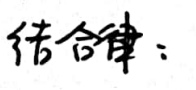 结合律：